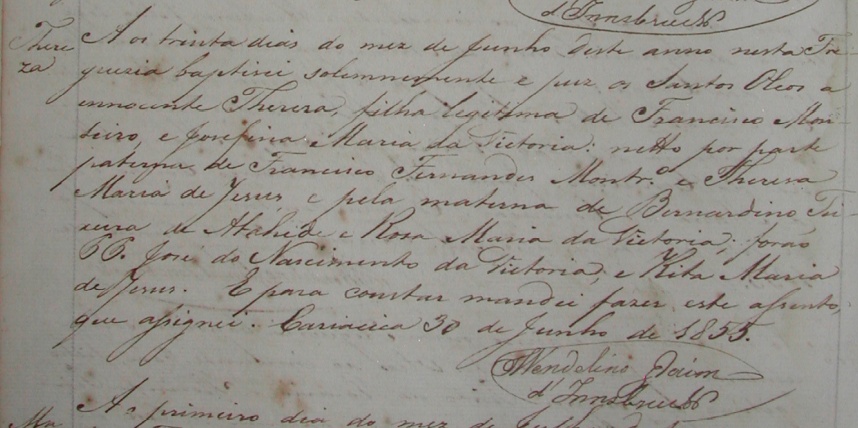 d'Innsbruck
There
za
Aos trinta dias do mez de Junho deste anno nesta Fre-
guezia baptisei solemnemente e puz os Santos Oleos a
innocente Thereza, filha legitima de Francisco Mon-
teiro, e Josefina Maria da Victoria: netto por parte
paterna de Francisco Fernandes Montr.º e Theresa
Maria de Jesus, e pela materna de Bernardino Tei-
xeira de Atahide e Rosa Maria da Victoria; forão
PP. José do Nascimento da Victoria, e Rita Maria
de Jesus. E para constar mandei fazer este assento,
que assignei. Cariacica 30 de Junho de 1855.
Wendelino
d'Innsbruck
Ao primeiro dia do mez de
Ma